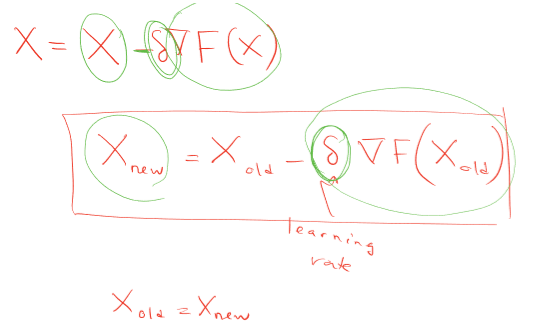 X = X - δ∇F(X)
X new = X old - δ ∇F(X old)
learning
rate
X old = X new